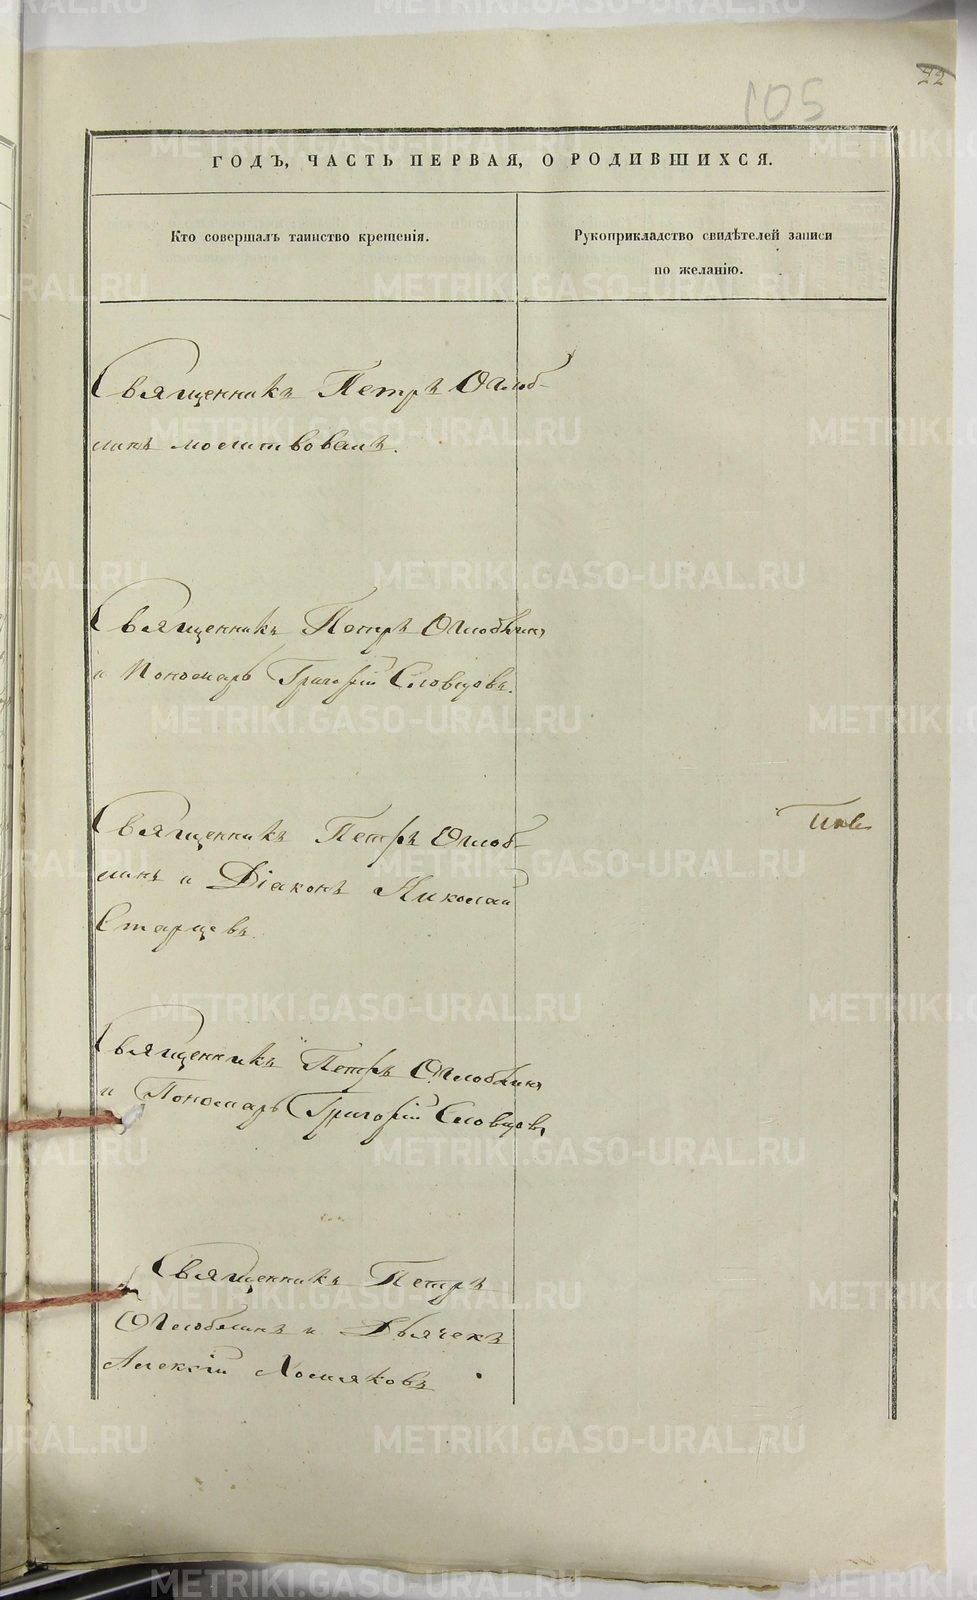 22
105
ГОДЪ, ЧАСТЬ ПЕРВАЯ, О РОДИВШИХСЯ.
Кто совершалъ таинство крещенія.
Рукоприкладство свидѣтелей записи
по желанію.
Священникъ Петръ Оглоб-
линъ молитвовалъ.
Священникъ Петръ Оглоблинъ
и Пономарь Григорій Словцовъ.
Священникъ Петръ Оглоб-
линъ и Діаконъ Николай
Старцевъ
Священникъ Петръ Оглоблинъ
и Пономарь Григорій Словцовъ
Священникъ Петръ
Оглоблинъ и Дьячекъ
Алексій Хомяковъ
METRIKI.GASO-URAL.RU